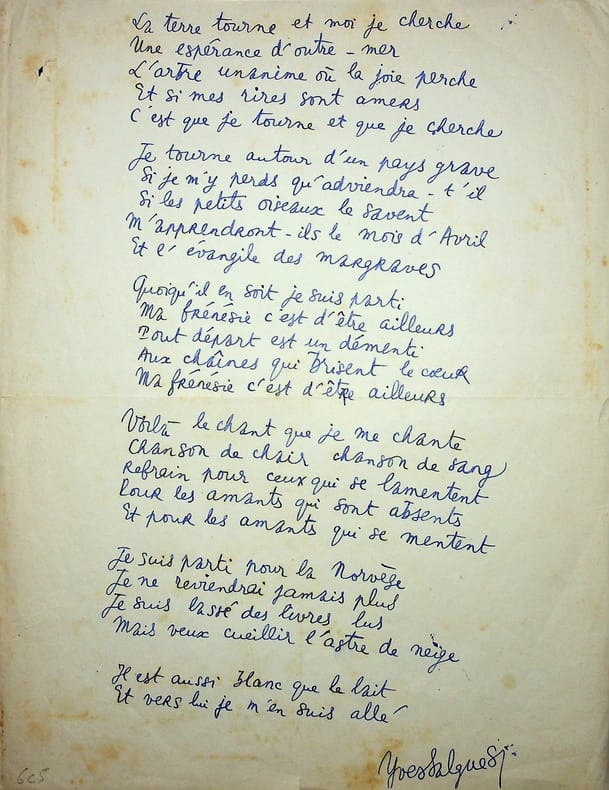 La terre tourne et moi je cherche
Une espérance d'outre-mer
L'arbre unanime où la joie perche
Et si mes rires sont amers
C'est que je tourne et que je cherche
Je tourne autour d'un pays grave
Si je m'y perds qu'adviendra-t'il
Si les petits oiseaux le savent
M'apprendront-ils le mois d'Avril
Et l'évangile des margraves
Quoiqu'il en soit je suis parti
Ma frénésie c'est d'être ailleurs
Tout départ est un démenti
Aux chaînes qui brisent le cœur
Ma frénésie c'est d'être ailleurs
Voilà le chant que je me chante
Chanson de chair chanson de sang
Refrain pour ceux qui se lamentent
Pour les amants qui sont absents
Et pour les amants qui se mentent
Je suis parti pour la Norvège
Je ne reviendrai jamais plus
Je suis lassé des livres lus
Mais veux cueillir l'astre de neige
Il est aussi blanc que le lait
Et vers lui je m'en suis allé
Yves Salgues
6c5